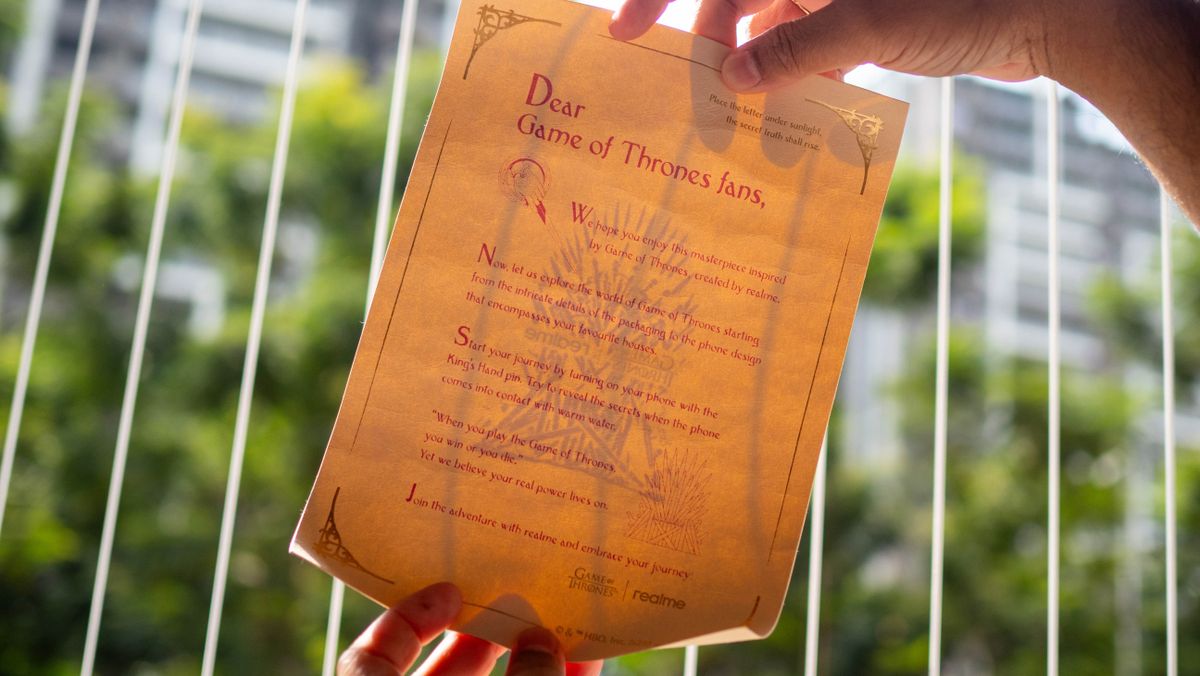 Place the letter under sunlight,
the secret truth shall rise.
Dear
Game of Thrones fans,
We hope you enjoy this masterpiece inspired
by Game of Thrones, created by realme.
Now, let us explore the world of Game of Thrones starting
from the intricate details of the packaging to the phone design
that encompasses your favourite houses.
Start your journey by turning on your phone with the
King's Hand pin. Try to reveal the secrets when the phone
comes into contact with warm water.
"When you play the Game of Thrones,
you win or you die."
Yet we believe your real power lives on.
Join the adventure with realme and embrace your journey
GAME OF THRONES | realme
© & ™ HBO, Inc.
realme
GAME OF
THRONES